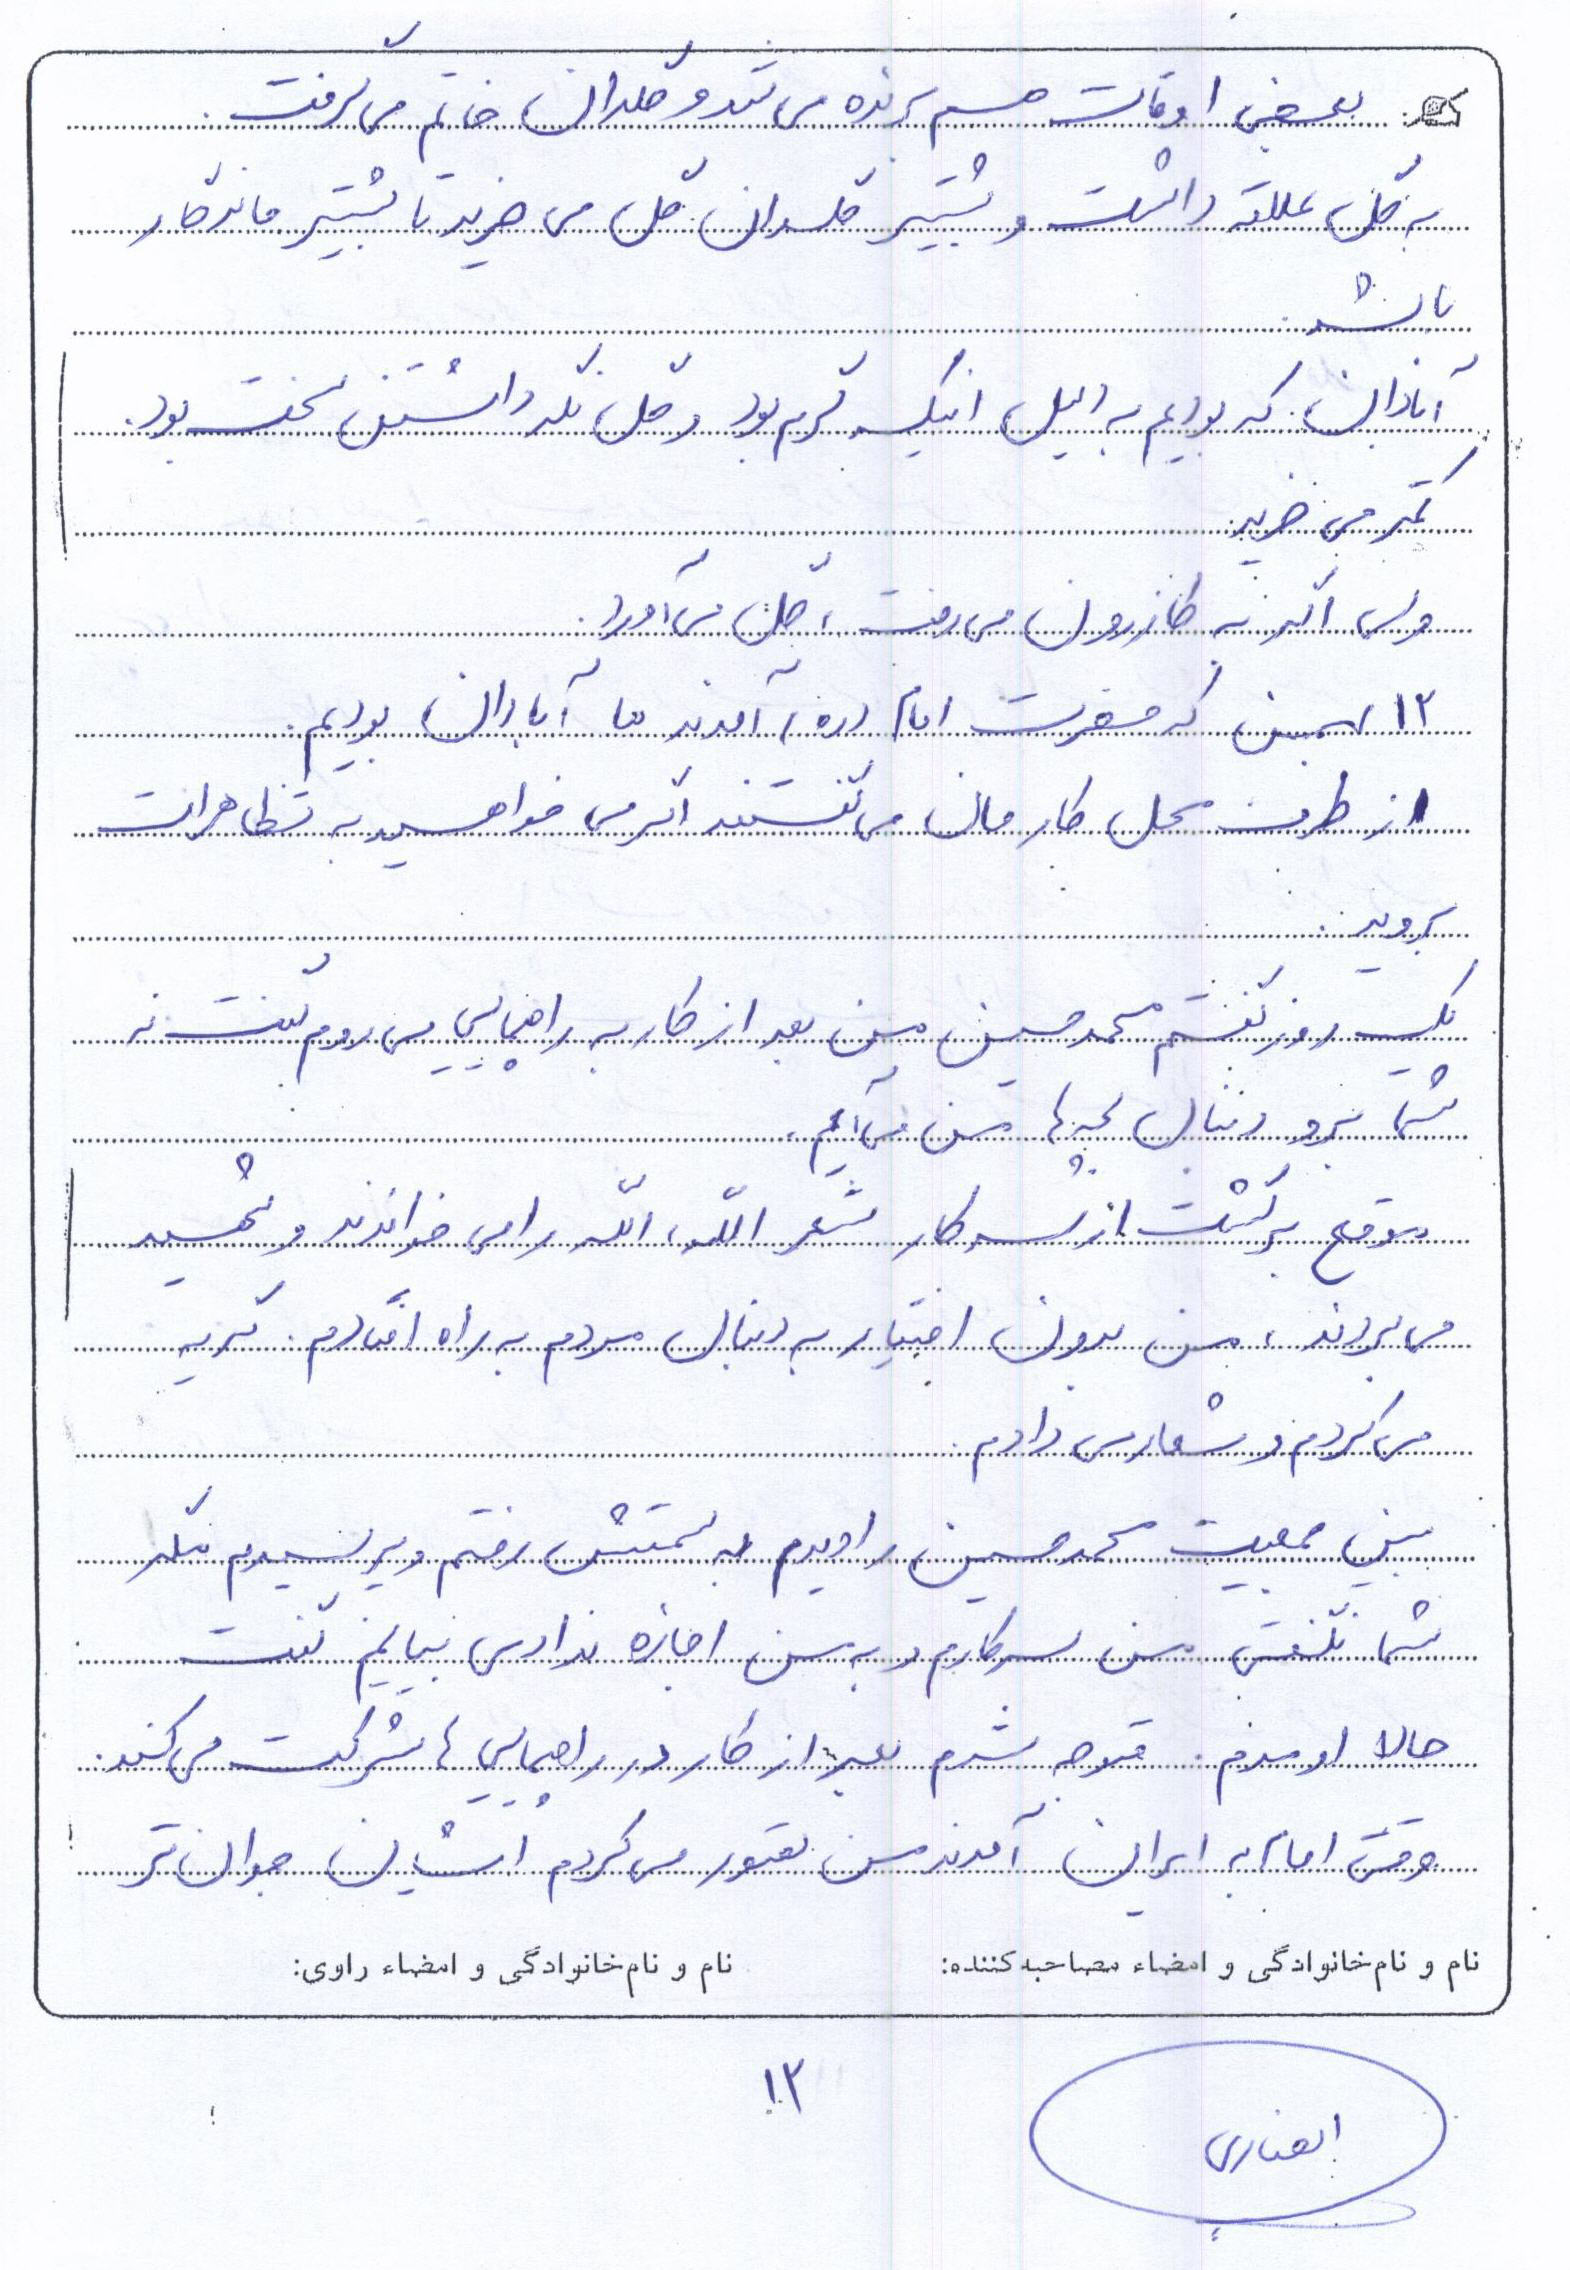 بعضی اوقات هم برنده می شد و گلدان خاتم می گرفت.
به گل علاقه داشت و بیشتر گلدان گل می خرید تا بیشتر ماندگار
باشد.
آبادان که بودیم به دلیل اینکه گرم بود و گل نگه داشتن سخت بود.
کمتر می خرید.
ولی اگر به کازرون می رفت، گل می آورد.
۱۲ بهمن که حضرت امام (ره) آمدند ما آبادان بودیم.
از طرف محل کارمان می گفتند اگر می خواهید به تظاهرات
بروید.
یک روز گفتم محمدحسین من بعد از کار به راهپیمایی می روم گفت نه
شما برو دنبال بچه ها من می آیم.
موقع برگشت از سر کار شعر الله، الله را می خواندند و شهید
می بردند، من بدون اختیار به دنبال مردم به راه افتادم. گریه
می کردم و شعار می دادم.
بین جمعیت محمدحسین را دیدم به سمتش رفتم و پرسیدم مگر
شما نگفتی من سر کارم و به من اجازه ندادی بیایم گفت
حالا اومدم. متوجه شدم بعد از کار در راهپیمایی ها شرکت می کند.
وقتی امام به ایران آمدند من تصور می کردم ایشان جوان تر
نام و نام خانوادگی و امضاء مصاحبه کننده: نام و نام خانوادگی و امضاء راوی:
۱۲
انصاری